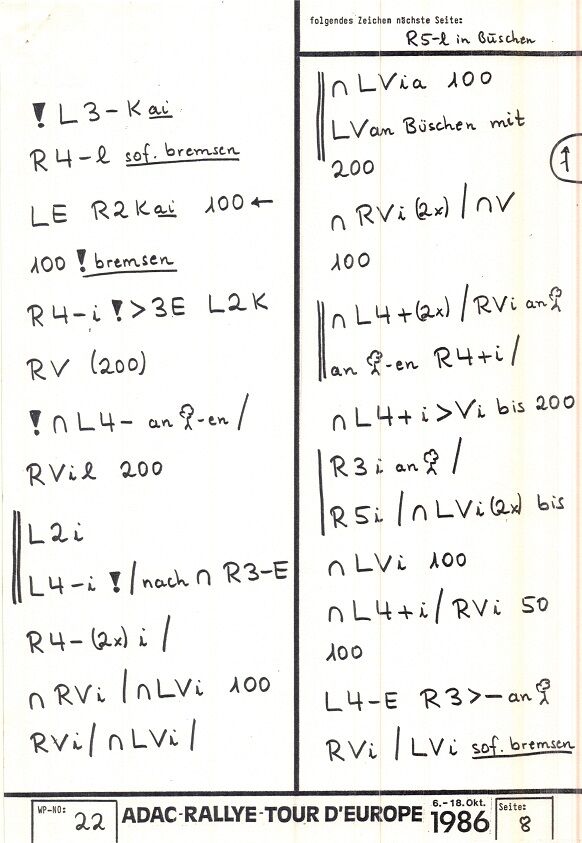 folgendes Zeichen nächste Seite:
R5-l in Büschen
! L3-Kai
R4-l sof. bremsen
LE R2Kai 100 ←
100 ! bremsen
R4-i ! > 3E L2K
RV (200)
! ∩ L4- an 🌳-en /
RVil 200
L2i
L4-i ! / nach ∩ R3-E
R4-(2x) i /
∩ RVi / ∩ LVi 100
RVi / ∩ LVi /
∩ LVia 100
LVan Büschen mit
200
∩ RVi (2x) / ∩ V
100
∩ L4+(2x) / RVi an 🌳
an 🌳-en R4+i /
∩ L4+i > Vi bis 200
R3i an 🌳 /
R5i / ∩ LVi (2x) bis
∩ LVi 100
∩ L4+i / RVi 50
100
L4-E R3>- an 🌳
RVi / LVi sof. bremsen
↑
WP-NO: 22
ADAC-RALLYE-TOUR D'EUROPE
6.-18. Okt.
1986
Seite: 8